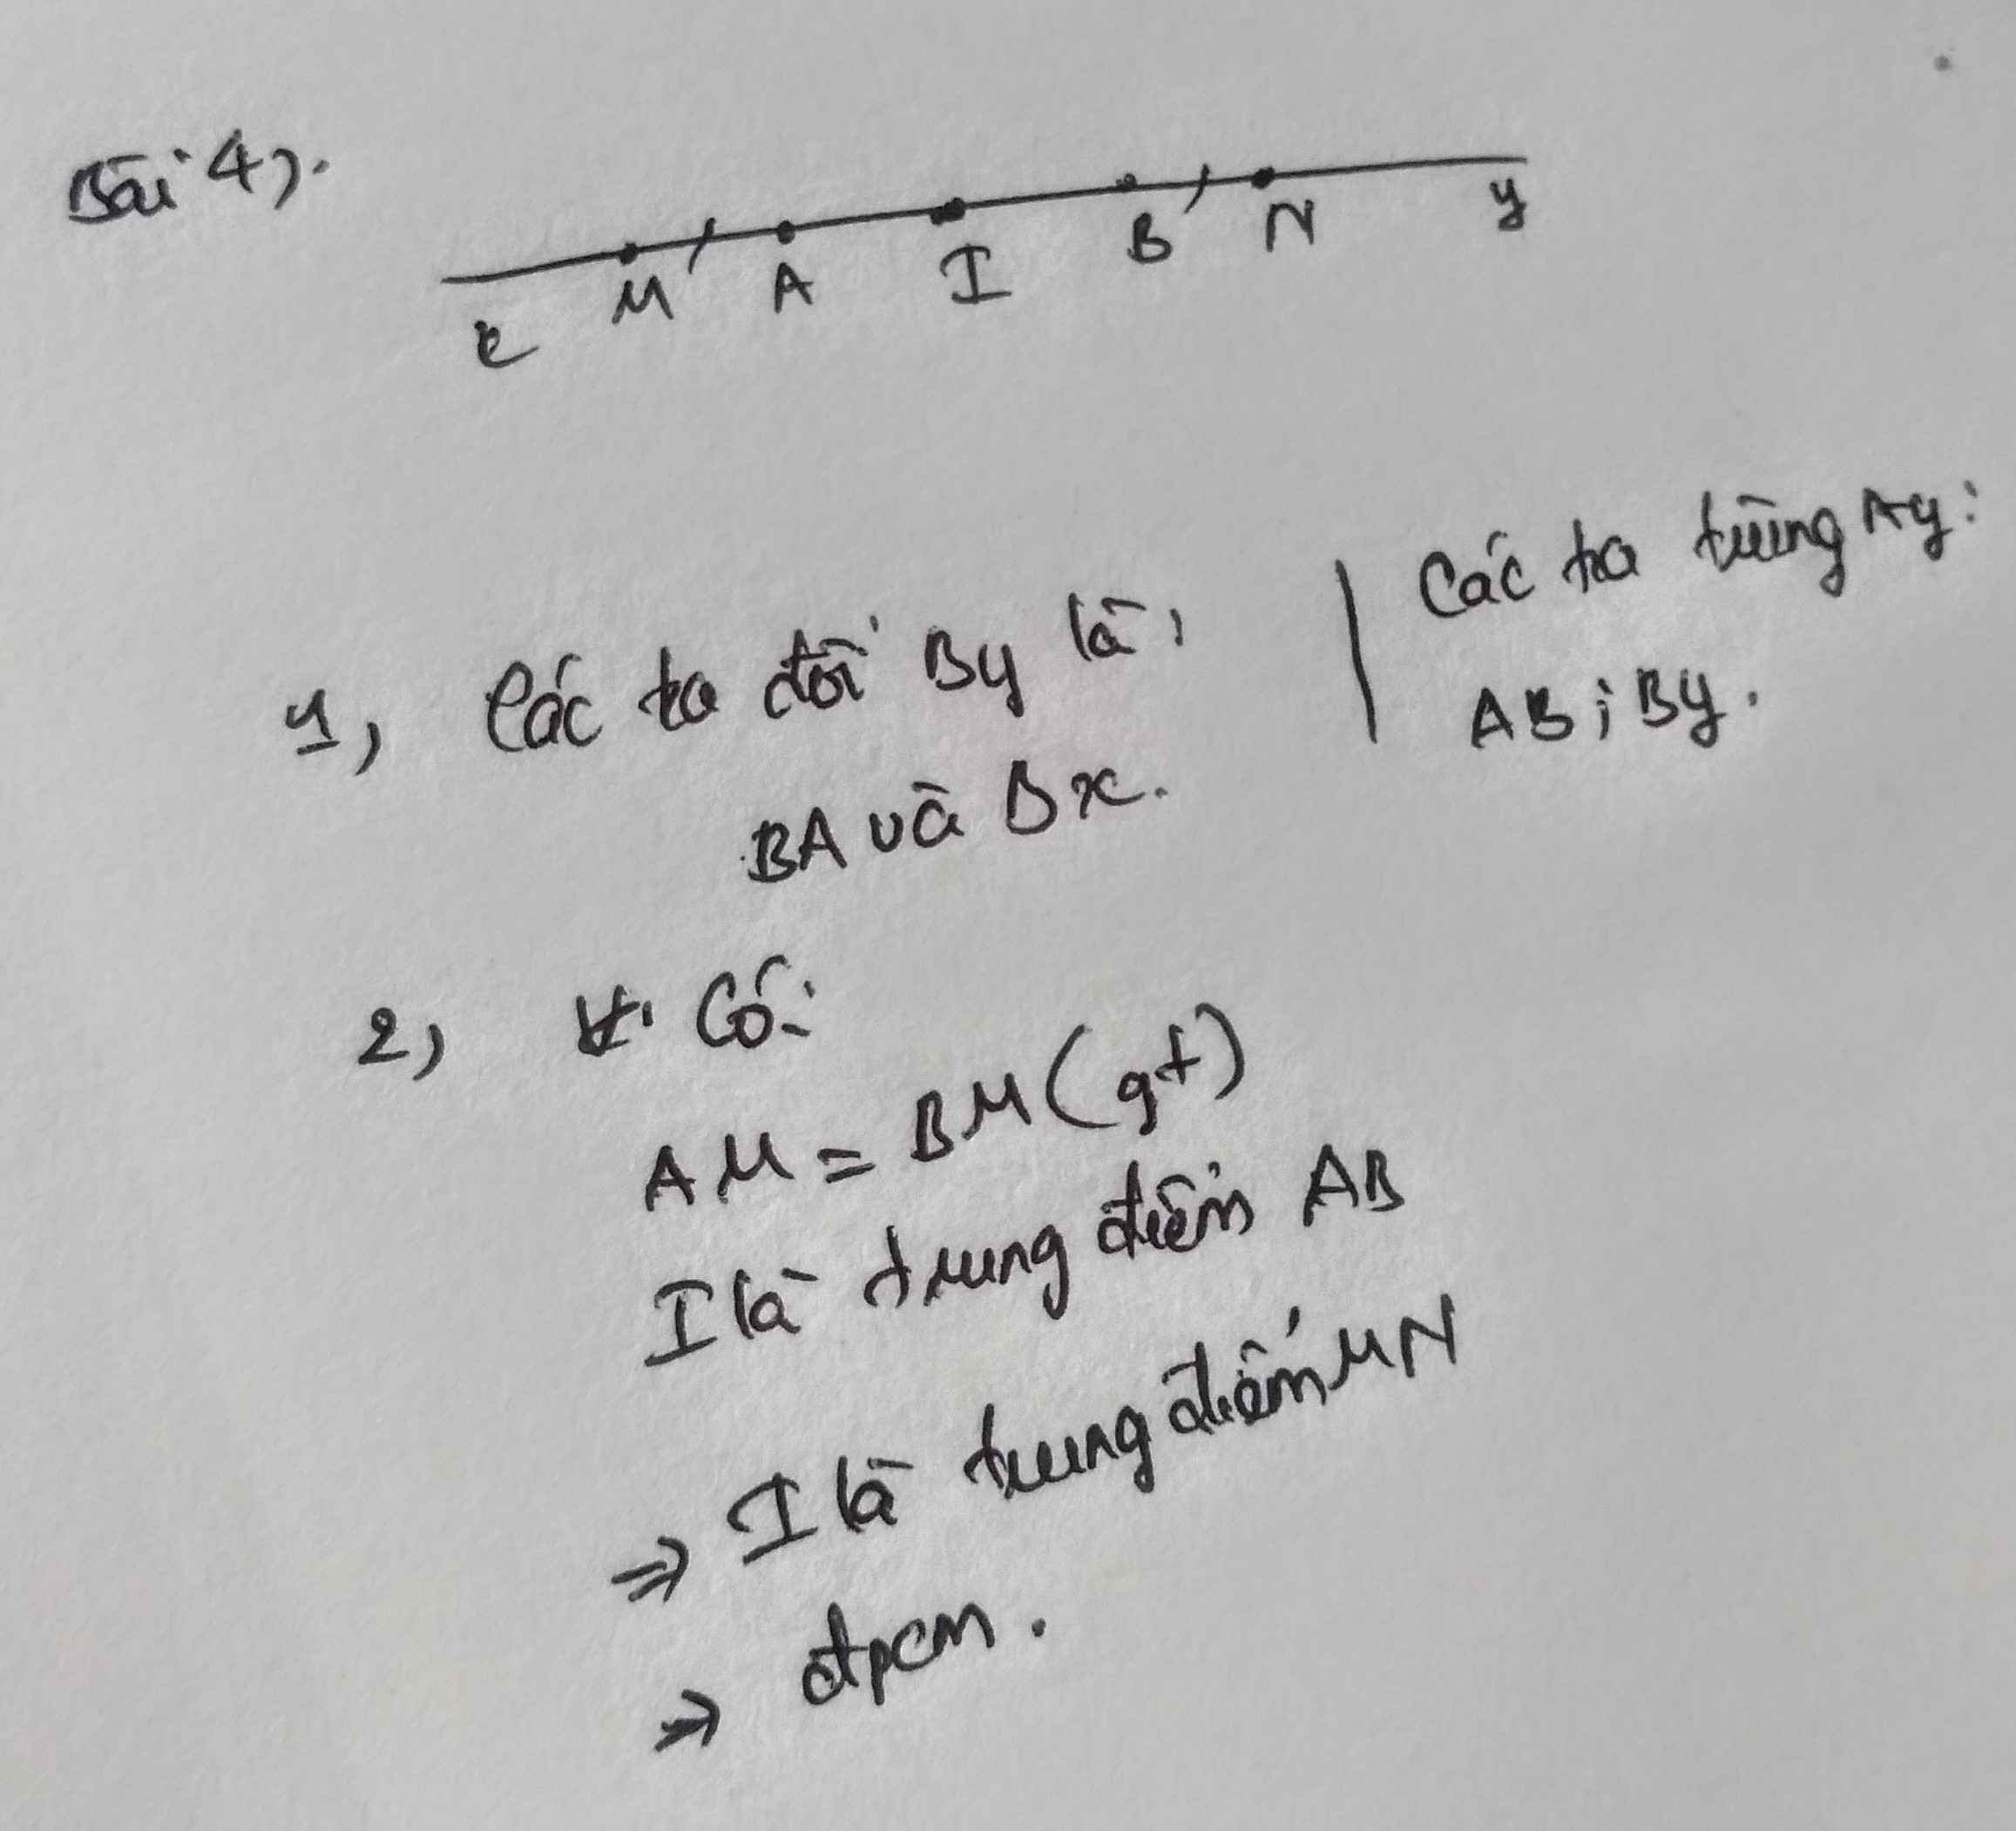 Bài 4).
x M A I B N y
1, Các tia đối By là:
BA và Bx.
Các tia trùng Ay:
AB; By.
2, Có:
AM = BM (gt)
I là trung điểm AB
⇒ I là trung điểm MN
⇒ đpcm.